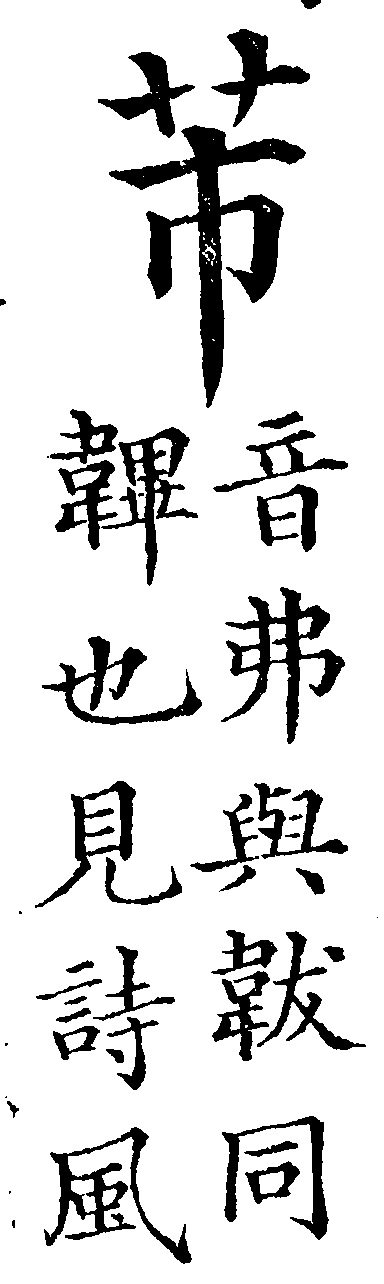 芾
音弗與韍同
韠也見詩風